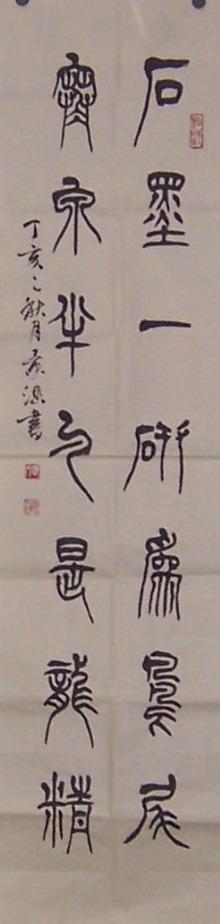 石墨一研為鳳尾
寒泉半勺是龍精
丁亥之秋月書